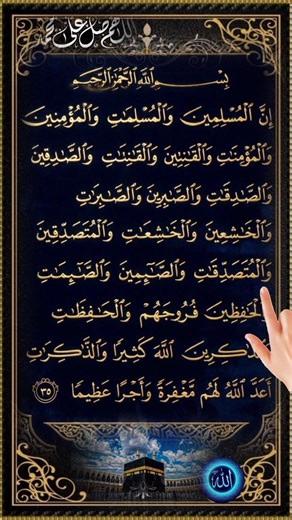 اللهم صل علی محمد
بِسْمِ اللَّهِ الرَّحْمَٰنِ الرَّحِيمِ
إِنَّ الْمُسْلِمِينَ وَالْمُسْلِمَاتِ وَالْمُؤْمِنِينَ
وَالْمُؤْمِنَاتِ وَالْقَانِتِينَ وَالْقَانِتَاتِ وَالصَّادِقِينَ
وَالصَّادِقَاتِ وَالصَّابِرِينَ وَالصَّابِرَاتِ
وَالْخَاشِعِينَ وَالْخَاشِعَاتِ وَالْمُتَصَدِّقِينَ
وَالْمُتَصَدِّقَاتِ وَالصَّائِمِينَ وَالصَّائِمَاتِ
وَالْحَافِظِينَ فُرُوجَهُمْ وَالْحَافِظَاتِ
وَالذَّاكِرِينَ اللَّهَ كَثِيرًا وَالذَّاكِرَاتِ
أَعَدَّ اللَّهُ لَهُم مَّغْفِرَةً وَأَجْرًا عَظِيمًا ٣٥
الله